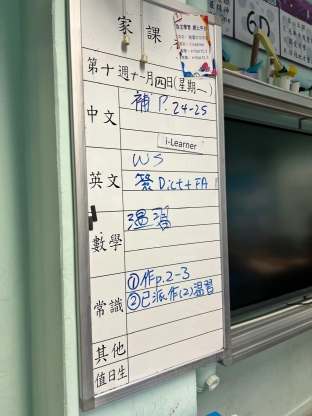 家課
第十週十一月四日(星期一)
中文
補P.24-25
i-Learner
英文
WS
簽Dict+FA
數學
溫習
常識
①作p.2-3
②已派作(2)溫習
其他
值日生
6D